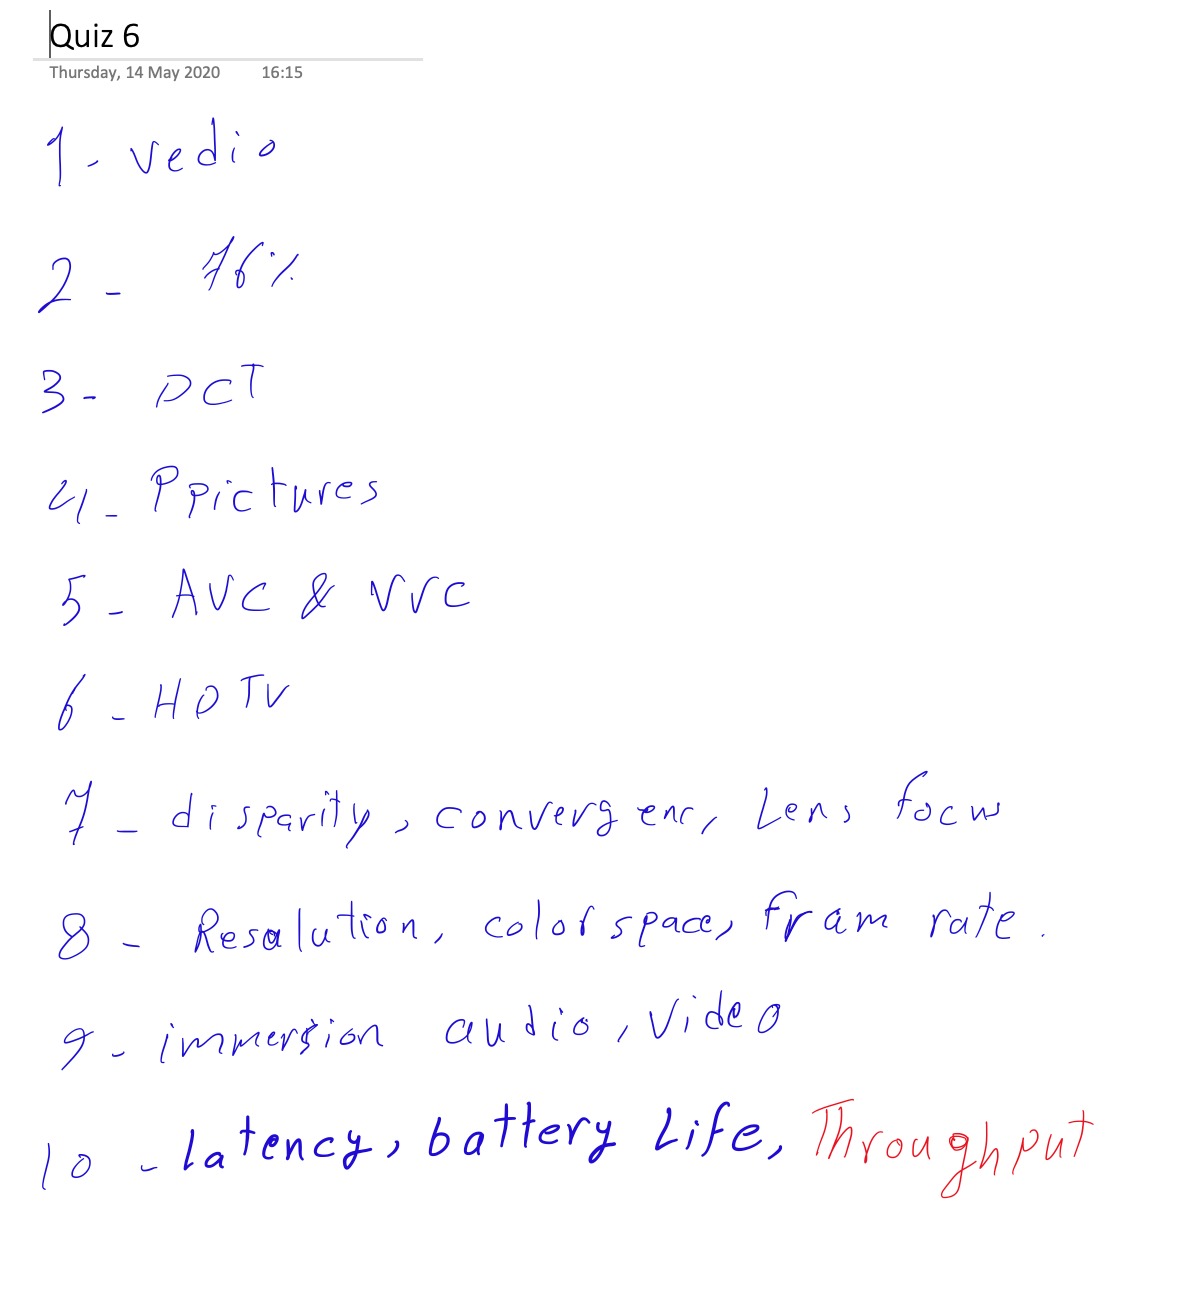 Quiz 6
Thursday, 14 May 2020 16:15
1- vedio
2- 76%
3- DCT
4- P pictures
5- AVC & VVC
6- HDTV
7- disparity, convergenc, Lens focus
8- Resalution, color space, fram rate.
9- immersion audio, video
10- latency, battery Life, Throughput